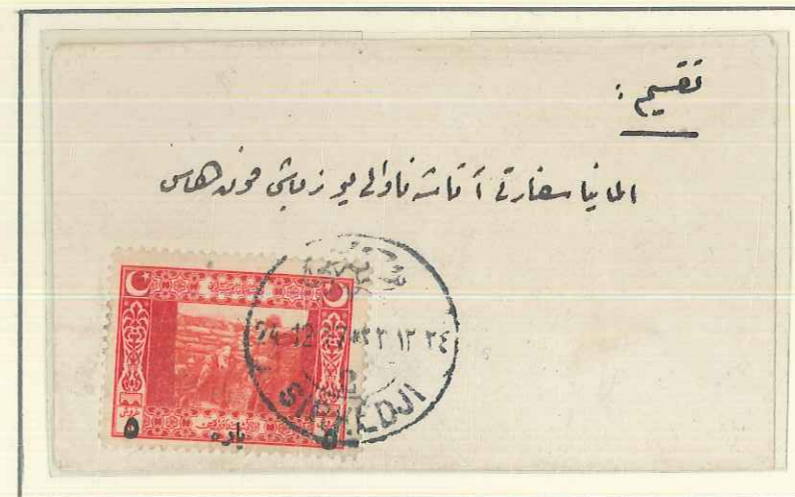 تقسيم :
المانيا سفارتی آتاشه ناوالی یوزباشی فون هاس
24.12.17*٣٣ ١٢ ٢٤
SIRKEDJI
٥ پاره ٥